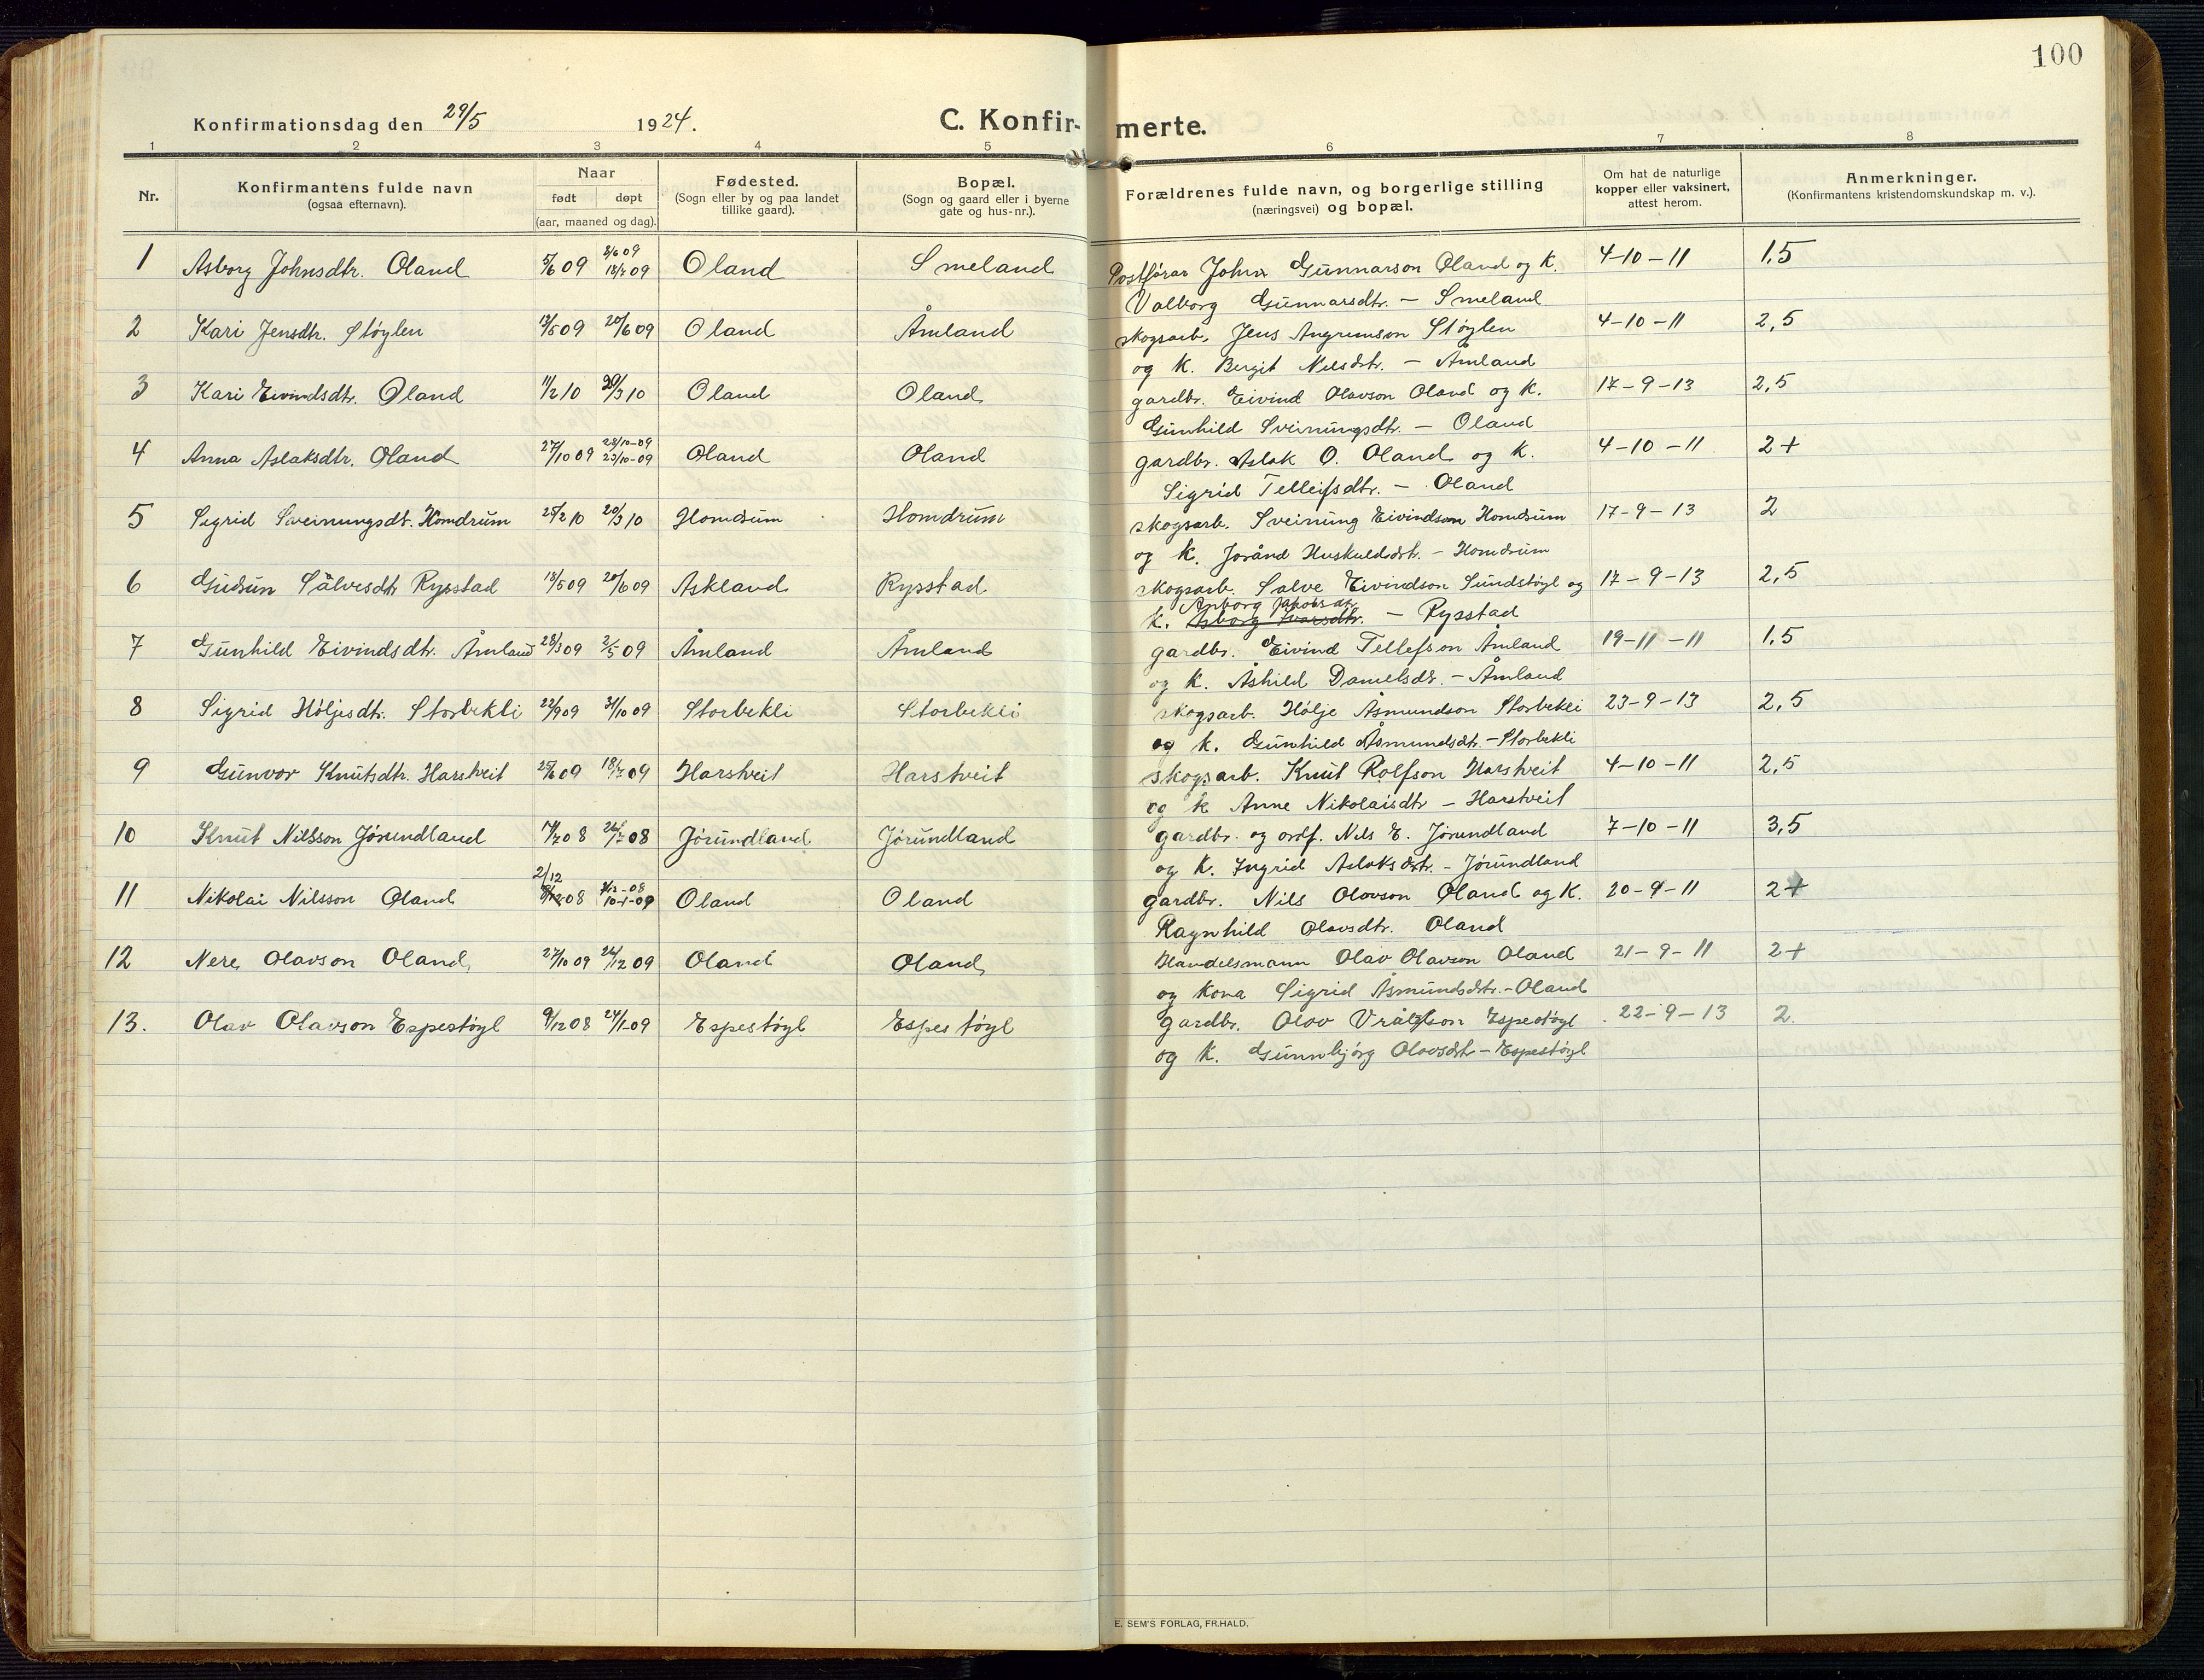 100
Konfirmationsdag den 29/5 1924. C. Konfir- merte.
1 2 3 4 5 6 7 8
Nr. Konfirmantens fulde navn (ogsaa efternavn). Naar født døpt (aar, maaned og dag). Fødested. (Sogn eller by og paa landet tillike gaard). Bopæl. (Sogn og gaard eller i byerne gate og hus-nr.). Forældrenes fulde navn, og borgerlige stilling (næringsvei) og bopæl. Om hat de naturlige kopper eller vaksinert, attest herom. Anmerkninger. (Konfirmantens kristendomskundskap m. v.).
1 Asborg Johnsdtr. Oland 5/6 09 8/6 09 18/7 09 Oland Smeland Postførar John Gunnarson Oland og k. 4-10-11 1,5
Valborg Gunnarsdtr. - Smeland
2 Kari Jensdtr. Støylen 13/5 09 20/6 09 Oland Åmland skogsarb. Jens Angrimson Støylen 4-10-11 2,5
og k. Bergit Nilsdtr. - Åmland
3 Kari Eivindsdtr. Oland 11/2 10 20/3 10 Oland Oland gardbr. Eivind Olavson Oland og k. 17-9-13 2,5
Gunhild Sveinungsdtr. - Oland
4 Anna Aslaksdtr. Oland 27/10 09 28/10-09 Oland Oland gardbr. Aslak O. Oland og k. 4-10-11 2+
Sigrid Telleifsdtr. - Oland
5 Sigrid Sveinungsdt. Homdrum 25/2 10 20/3 10 Homdrum Homdrum skogsarb. Sveinung Eivindson Homdrum 17-9-13 2
og k. Jorånd Huskuldsdtr. - Homdrum
6 Gudrun Sålvesdtr Rysstad 18/5 09 20/6 09 Askland Rysstad skogsarb. Salve Eivindson Sundstøyl og 17-9-13 2,5
k. Asborg Ivarsdtr. Anborg Jakobsdtr. - Rysstad
7 Gunhild Eivindsdtr. Åmland 28/3 09 2/5 09 Åmland Åmland gardbr. Eivind Tellefson Åmland 19-11-11 1,5
og k. Åshild Danielsdtr. - Åmland
8 Sigrid Høljesdtr. Storbekli 22/9 09 31/10 09 Storbekli Storbekli skogsarb. Hølje Åsmundson Storbekli 23-9-13 2,5
og k. Gunhild Åsmundsdtr. - Storbekli
9 Gunvor Knutsdtr. Harstveit 25/6 09 18/7 09 Harstveit Harstveit skogsarb. Knut Rolfson Harstveit 4-10-11 2,5
og k Anne Nikolaisdtr - Harstveit
10 Knut Nilsson Jørundland 14/7 08 26/7 08 Jørundland Jørundland gardbr. og ordf. Nils E. Jørundland 7-10-11 3,5
og k. Ingrid Aslaksdtr. - Jørundland
11 Nikolai Nilsson Oland 2/12 08 10-1-09 Oland Oland gardbr. Nils Olavson Oland og k. 20-9-11 2+
Ragnhild Olavsdtr. Oland
12 Nere Olavson Oland 27/10 09 26/12 09 Oland Oland Handelsmann Olav Olavson Oland 21-9-11 2+
og kona Sigrid Åsmundsdtr. - Oland
13. Olav Olavson Espestøyl 9/12 08 24/1-09 Espestøyl Espestøyl gardbr. Olav Espestøyl 22-9-13 2.
og k. Gunnbjørg Olavsdtr - Espestøyl
E. SEM'S FORLAG, FR.HALD.